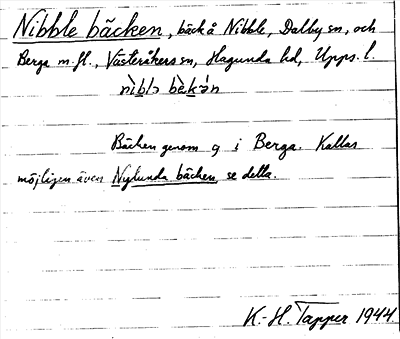 Nibble bäcken, bäck å Nibble, Dalby sn, och
Berga m.fl., Västeråkers sn, Hagunda hd, Upps. l.
nìblɔ bèkɔ́n
Bäcken genom g i Berga. Kallas
möjligen även Nylunda bäcken, se detta.
K.-H. Tapper 1944.